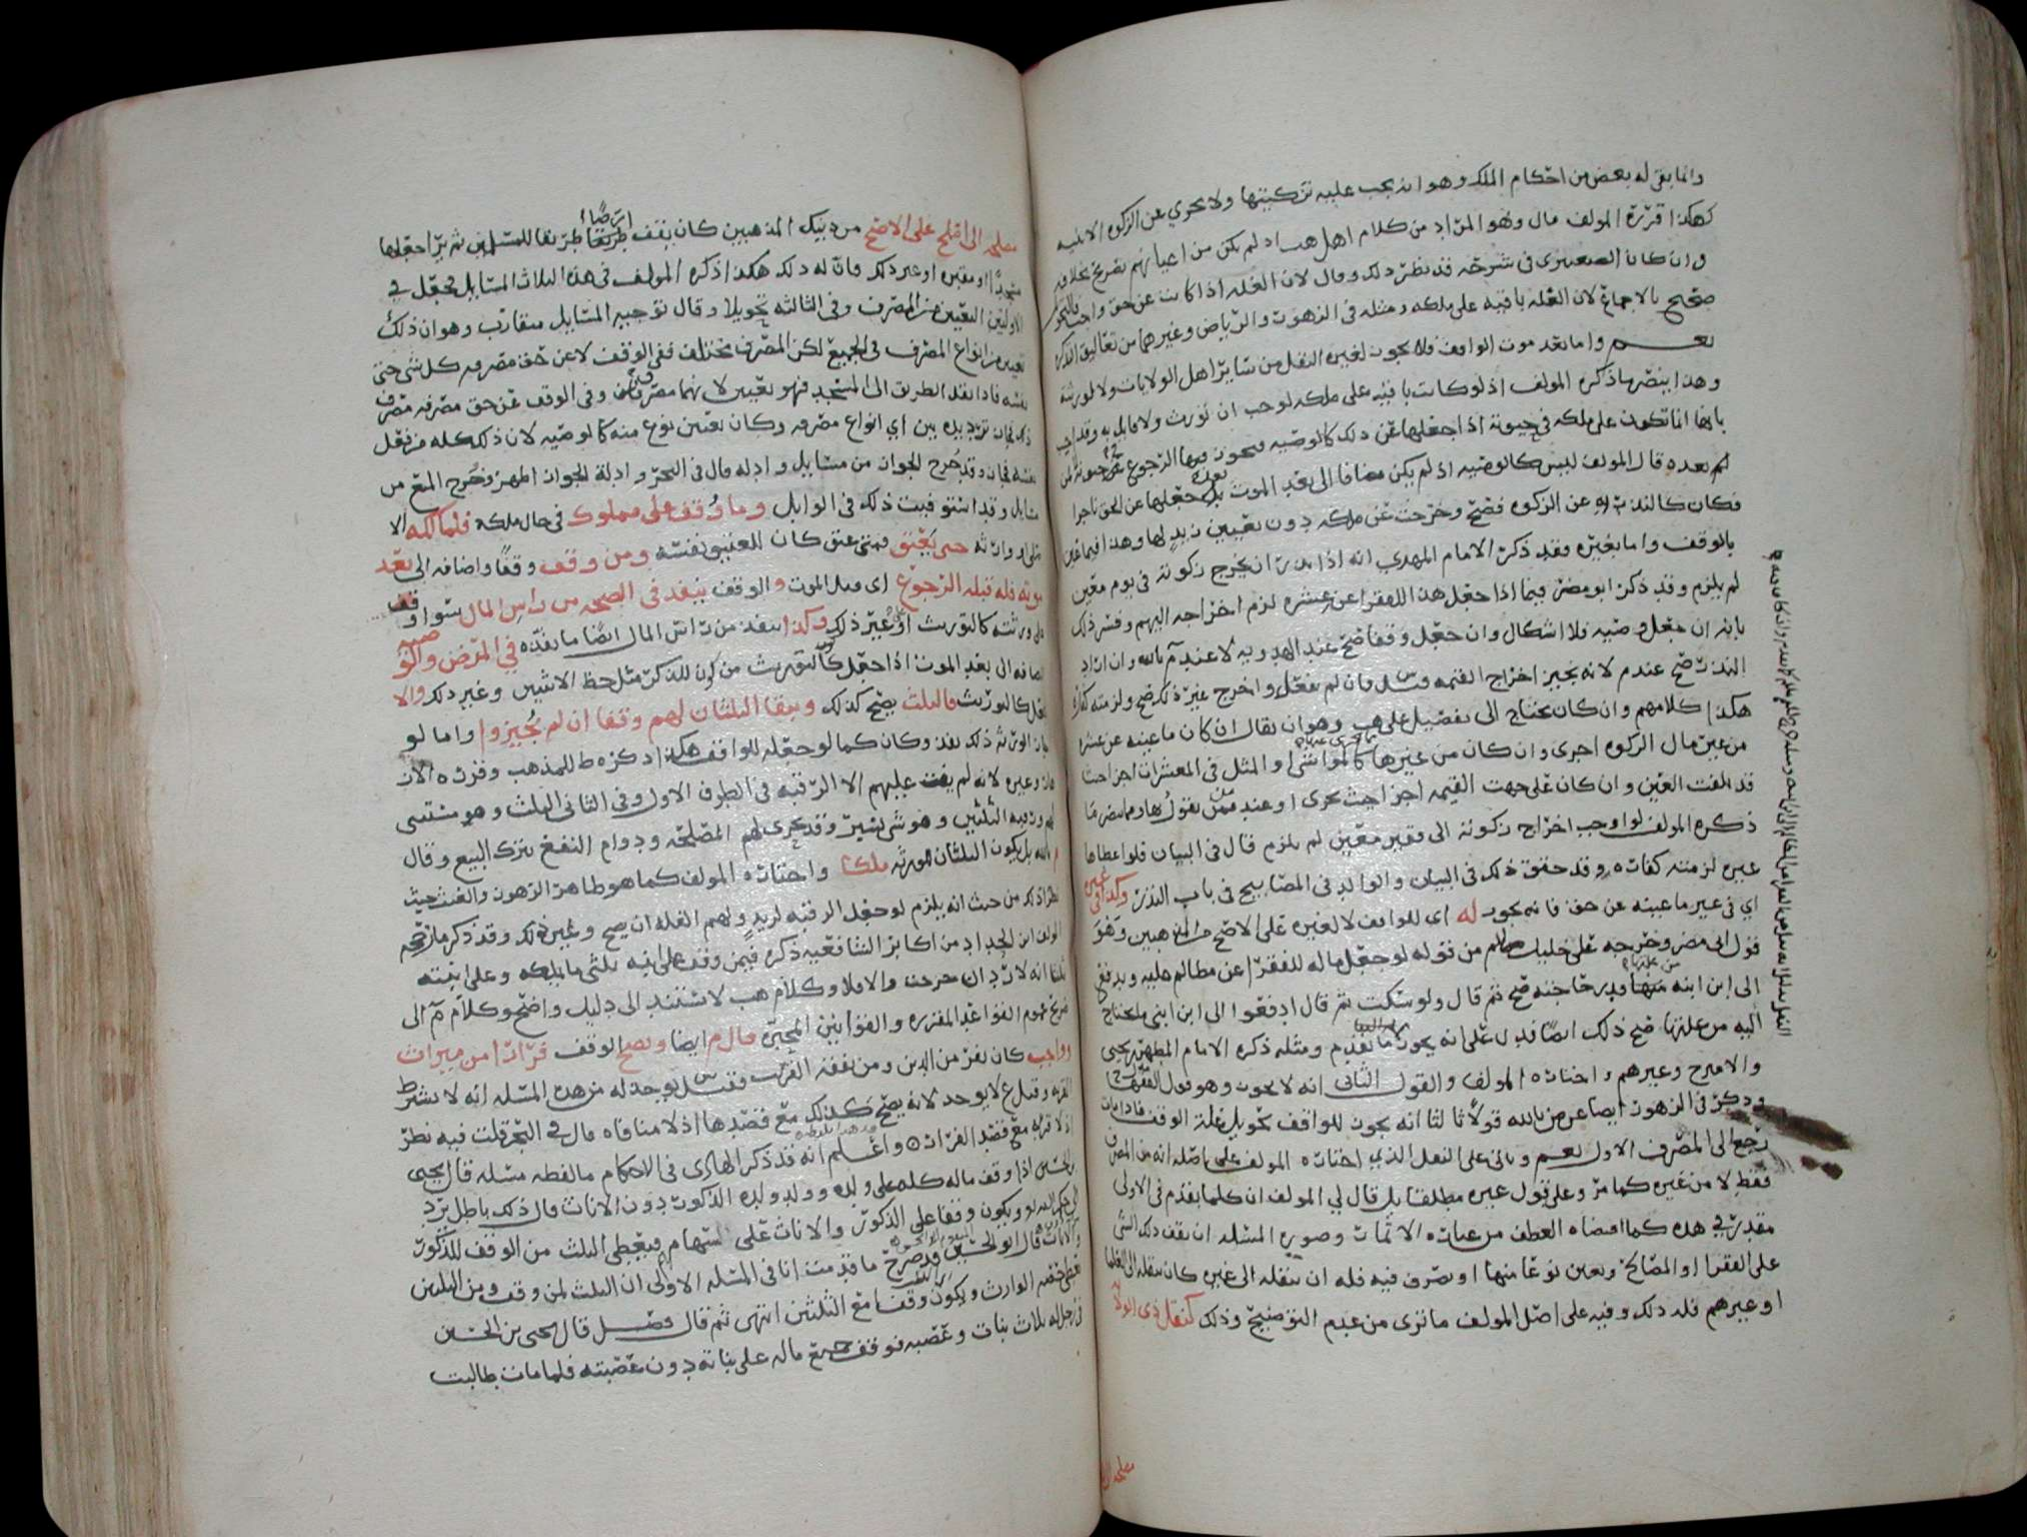 وانما بقي له بعض من احكام الملك وهو انه يجب عليه تزكيتها ولا يجزي عن الزكوة الا بنيه
هكذا قرره المولف قال وهو المراد من كلام اهل المذهب اذ لم يكن من اعيانهم تصريح بخلافه
وان كان الصعيتري في شرحه قد نظر ذلك وقال لان الغله اذا كانت عن حق واجب
صحيح بالاجماع لان الغله باقيه على ملكه ومثله في الزهور والرياض وغيرهما من تعاليق التذكرة
نعم واما بعد موت الواقف فلا يجوز لغيره النقل من سائر اهل الولايات ولا لورثته
وهذا ينصر ما ذكره المولف اذ لو كانت باقيه على ملكه لوجب ان تورث ولا قايل به وقد اجيب
بانها انما تكون على ملكه في حيوته اذا جعلها عن ذلك كالوصيه فيجوز فيها الرجوع
لم بعده قال المولف ليس كالوصيه اذ لم يكن مضافا الى بعد الموت بل جعلها عن الحق ناجزا
فكان كالنذر به عن الزكوه فصح وخرجت عن ملكه دون تعيين زيد لها وهذا فيما عين
بالوقف واما بغيره فقد ذكر الامام المهدي انه اذا نذر ان يخرج زكوته في يوم معين
لم يلزم وقد ذكر ابو مضر فيما اذا جعل هذا للفقرا عن عشره لزم اخراجه اليهم وفسر ذلك
بانه ان جعل وصيه فلا اشكال وان جعل وقفا صح عند الهدويه لا عند م بالله وان اراد
النذر صح عندم لانه يجيز اخراج القيمه وقيل فان لم يفعل واخرج غير ذلك صح ولزمته كفارة
هكذا كلامهم وان كان يحتاج الى تفصيل على هب وهو ان يقال ان كان ما عينه عن عشره
من عين مال الزكوه اجزى وان كان من غيرها كالمواشي او المثل في المعشرات اجزا حيث
قد تلفت العين وان كان على جهت القيمه اجزا حيث تجزى او عند من يقول بها ومما ينصر ما
ذكره المولف لو اوجب اخراج زكوته الى فقير معين لم يلزم قال في البيان فلو اعطاها
غيره لزمته كفاره وقد حقق ذلك في البيان والوالد في المصابيح في باب النذر وكذا في غيره
اي في غير ما عينه عن حق فانه يجوز له اي للواقف لا لغيره على الاصح من المذهبين وهو
قول ابي مضر وخرجه على خليل من قوله لو جعل ماله للفقرا عن مظالم عليه ويدفع
الى ابن ابنه منها قدر حاجته صح ثم قال ولو سكت ثم قال ادفعوا الى ابن ابني ما يحتاج
اليه من غلتها صح ذلك ايضا فدل على انه يجوز ما تقدم ومثله ذكره الامام المطهر بن يحيى
والامير ح وغيرهم واختاره المولف والقول الثاني انه لا يجوز وهو قول الفقها
وذكر في الزهور ايضا عن م بالله قولا ثالثا انه يجوز للواقف تحويل غلة الوقف فاذا مات
رجع الى المصرف الاول نعم وياتي على النقل الذي اختاره المولف على اصله انه من المصرف
فقط لا من غيره كما مر وعلى قول غيره مطلقا بل قال لي المولف ان كلما تقدم في الاولى
مقدر في هذه كما اقتضاه العطف من عباره الاثمار وصورة المسئله ان يقف ذلك الشي
على الفقرا او المصالح ويعين نوعا منها او يصرف فيه فله ان ينقله الى غيره كان ينقله الى العلما
او غيرهم فله ذلك وفيه على اصل المولف ما ترى من عدم التوضيح وذلك كنقل ذي الولاية
مصلحة الى
مصلحه الى اصلح على الاصح من ذينك المذهبين كان يقف طريقا للمسلمين ثم يرا جعلها
مسجدا او مقبره او غير ذلك فان له ذلك هكذا ذكره المولف في هذه الثلاث المسايل فجعل في
الاوليين التعيين من المصرف وفي الثالثه تحويلا وقال توجيه المسايل متقارب وهو ان ذلك
تعيين من انواع المصرف في الجميع لكن المصرف يختلف ففي الوقف لا عن حق مصرفه كل شي حتى
نفسه فاذا نقل الطريق الى المسجد فهو تعيين لانهما مصرفان وفي الوقف عن حق مصرفه مصرف
ذلك فجاز ترديده بين اي انواع مصرفه وكان تعيين نوع منه كالوصيه لان ذلك كله من فعل
نفسه فجاز وقد خرج الجواز من مسايل وادله قال في البحر وادلة الجواز اظهر وخرج المنع من
مسايل وقد استوفيت ذلك في الوابل وما وقف على مملوك في حال ملكه فلمالكه الا
حتى يعتق فمتى عتق كان للعتيق نفسه ومن وقف وقفا واضافه الى بعد
موته فله قبله الرجوع اي قبل الموت والوقف ينفذ في الصحه من راس المال سوا وقف
على ورثته كالتوريث او غير ذلك وكذا ينفذ من راس المال ايضا ما نفذه في المرض والوصيه
المضافه الى بعد الموت اذا جعل كالتوريث من كون للذكر مثل حظ الانثيين وغير ذلك والا
يفعل كالتوريث فالثلث يصح كذلك ويبقا الثلثان لهم وقفا ان لم يجيزوا واما لو
اجاز الورثه ذلك نفذ وكان كما لو جعله للواقف هكذا ذكره ط للمذهب وقرره الازر
قان وغيره لانه لم يفت عليهم الا الرقبه في الطرف الاول وفي الثاني الثلث وهو مستثنى
لهم ورقبه الثلثين وهو شي يسير وقد يجري لهم المصلحه ودوام النفع بترك البيع وقال
م بالله بل يكون الثلثان للورثه ملكا واختاره المولف كما هو ظاهر الزهور والغيث حيث
نظر ذلك من حيث انه يلزم لو جعل الرقبه لزيد ولهم الغله ان يصح وغير ذلك وقد ذكر ما رجحه
المولف ابن الحداد من اكابر الشافعيه ذكره فيمن وقف على ابنه ثلثي ما يملكه وعلى ابنته
ثلثا انه لا رد ان خرجت والا فلا وكلام هب لا يستند الى دليل واضح وكلام م الى
صريح عموم القواعد المقرره والقوانين المجيزة قال م ايضا ويصح الوقف فرارا من ميراث
وواجب كان يفر من الدين ومن نفقة القريب وقيل يوخذ له من هذه المسئله انه لا يشترط
القربه وقيل ع لا يوخذ لانه يصح كذلك مع قصدها اذ لا منافاه قال في البحر قلت فيه نظر
اذ لا قربه مع قصد الفرار واعلم انه قد ذكر الهادي في الاحكام ما لفظه مسئله قال يحيى
بن الحسين اذا وقف ماله كله على ولده وولد ولده الذكور دون الاناث قال ذلك باطل يرد
الى حكم الله ويكون وقفا على الذكور والاناث على السهام فيعطى الثلث من الوقف للذكور
والاناث قال ابو الحسين قد صرح ما قدمت انا في المسئله الاولى ان الثلث لمن وقف ومن الثلثين
يعطى حصه الوارث ويكون وقفا مع الثلثين انتهى ثم قال فصل قال يحيى بن الحسين
في رجل له ثلاث بنات وعصبه فوقف جميع ماله على بناته دون عصبته فلما مات طالبت